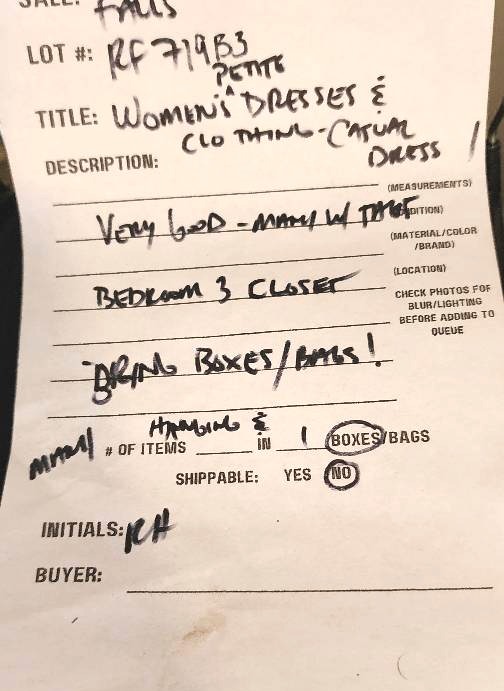 SALE: FALLS
LOT #: RF719B3
PETITE
TITLE: WOMEN'S ^ DRESSES &
CLOTHING - CASUAL
DESCRIPTION: DRESS /
(MEASUREMENTS)
VERY GOOD - MANY W/ TAGS (CONDITION)
(MATERIAL/COLOR
/BRAND)
(LOCATION)
BEDROOM 3 CLOSET
CHECK PHOTOS FOR
BLUR/LIGHTING
BEFORE ADDING TO
QUEUE
BRING BOXES/BAGS!
HANGING &
MANY # OF ITEMS ____ IN 1 BOXES/BAGS
SHIPPABLE: YES NO
INITIALS: RH
BUYER: